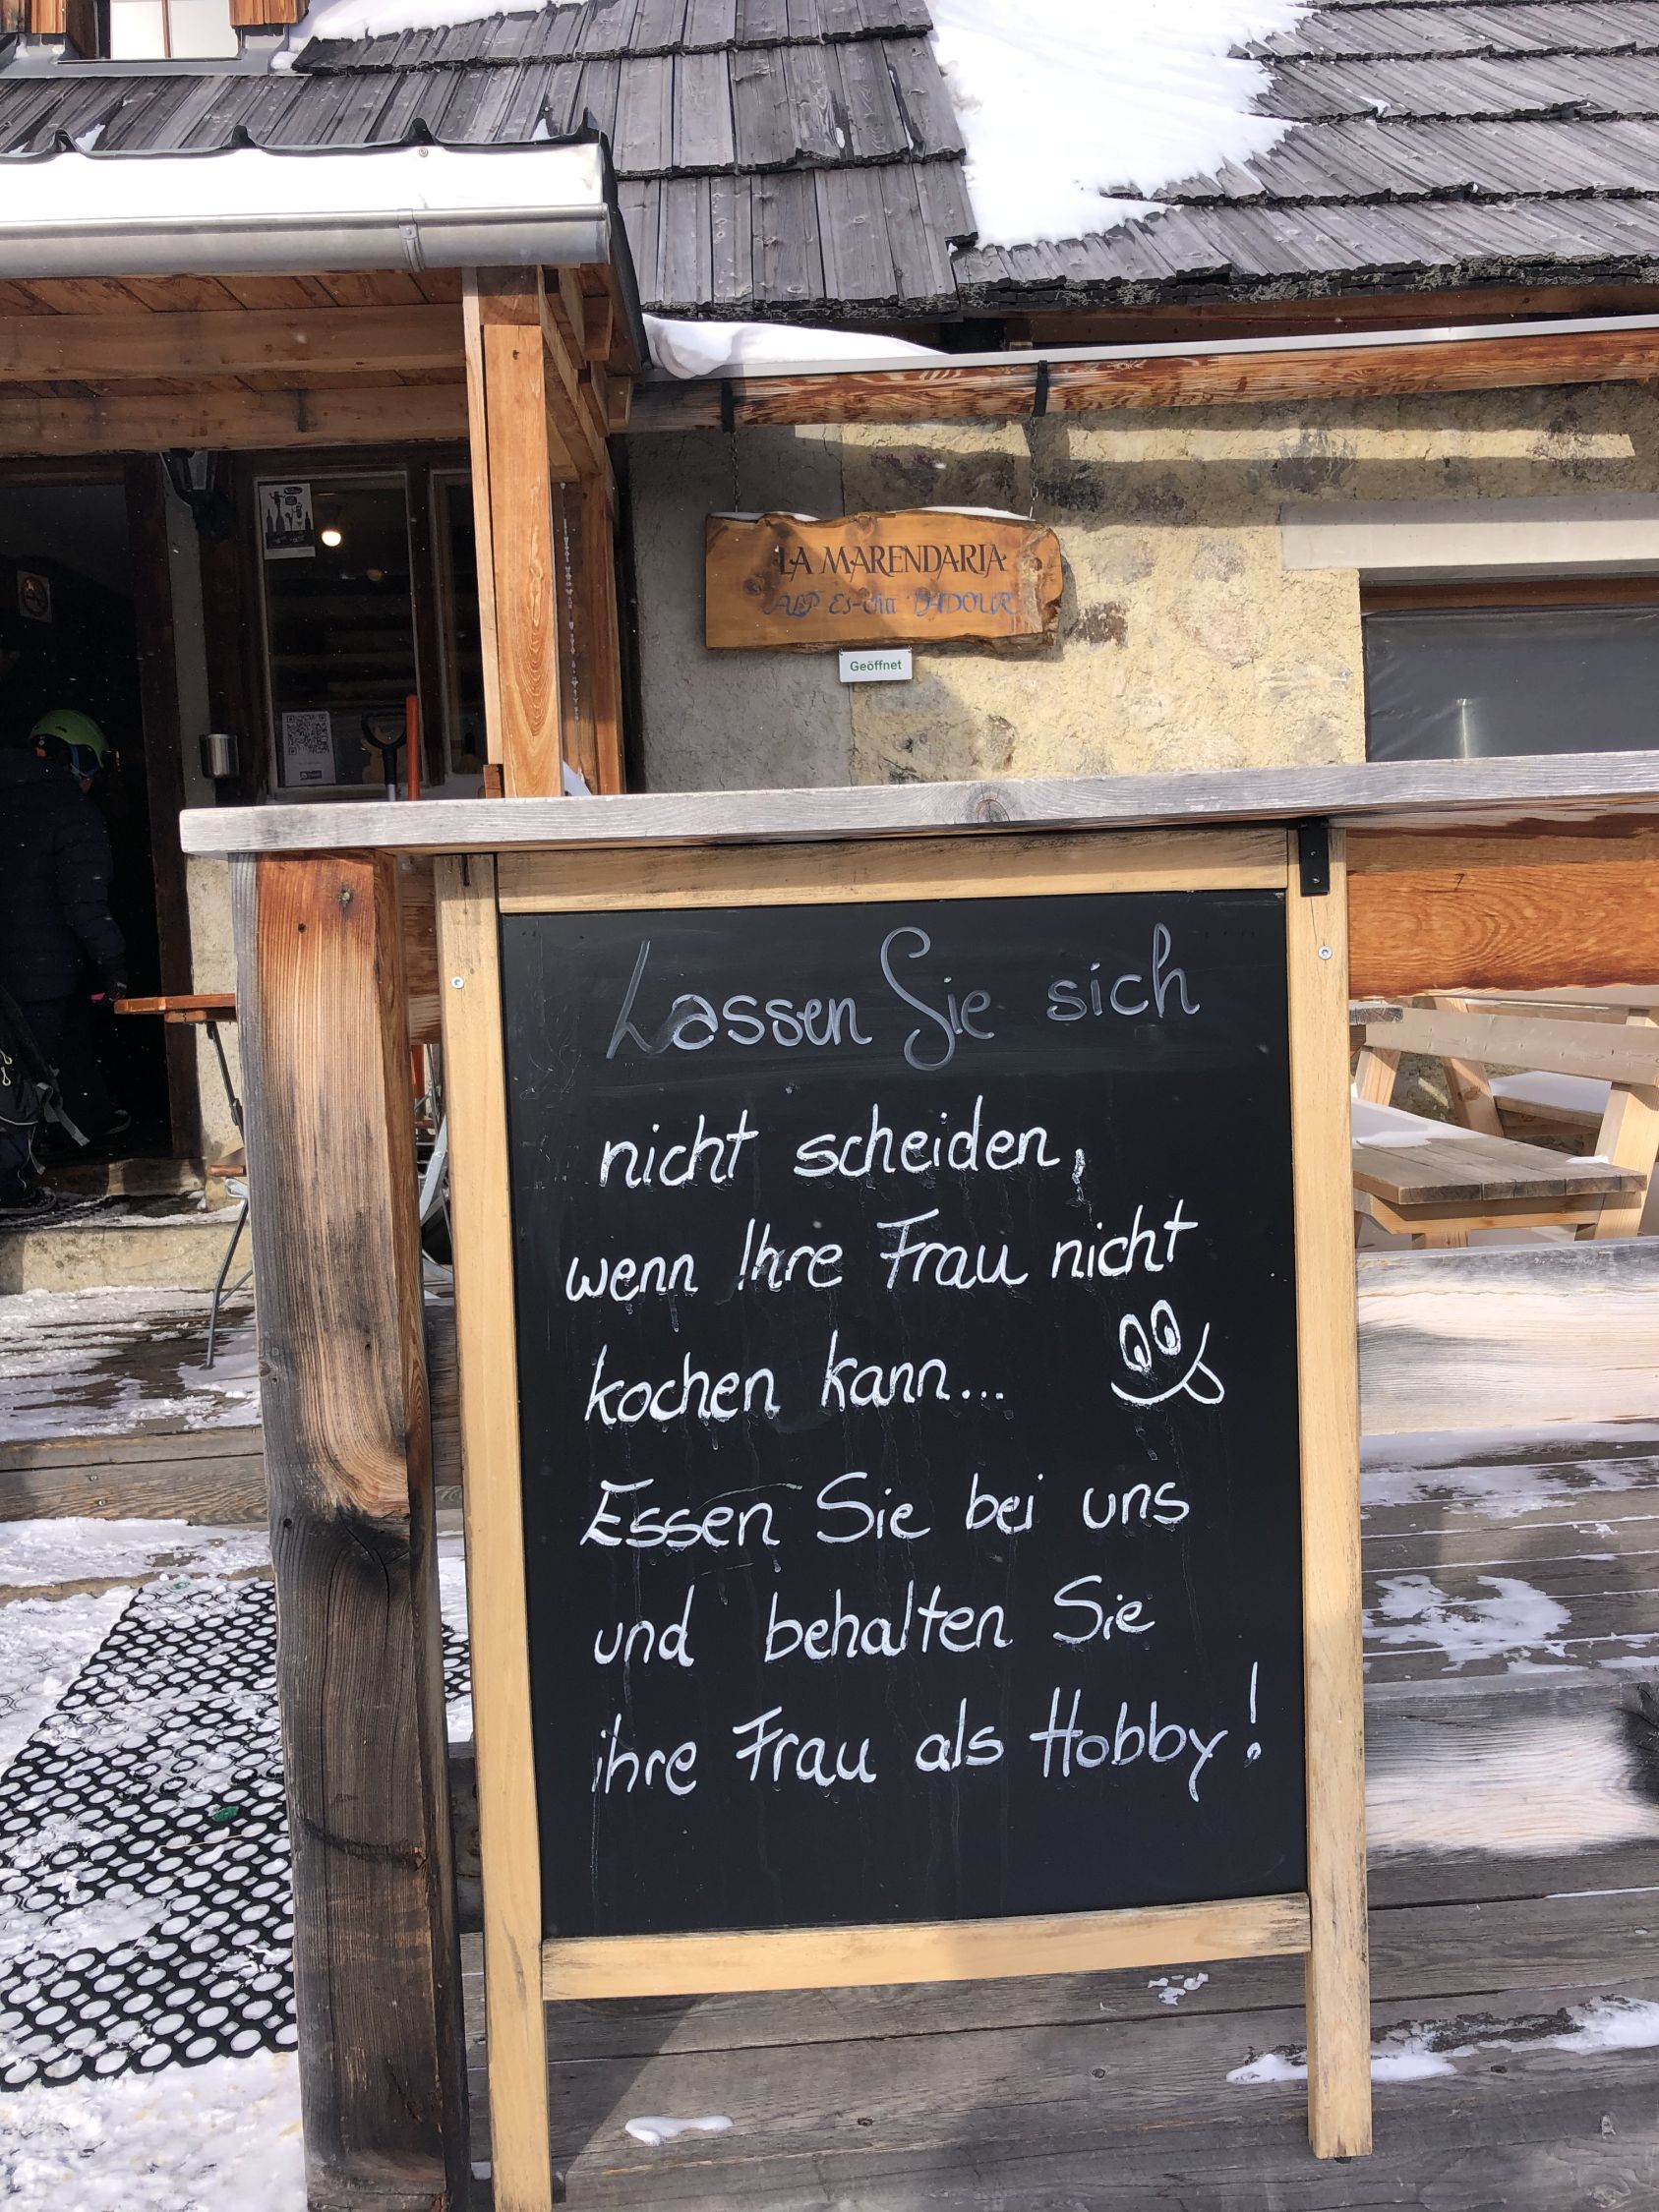 LA MARENDARIA
Geöffnet
Lassen Sie sich
nicht scheiden,
wenn Ihre Frau nicht
kochen kann...
Essen Sie bei uns
und behalten Sie
ihre Frau als Hobby!